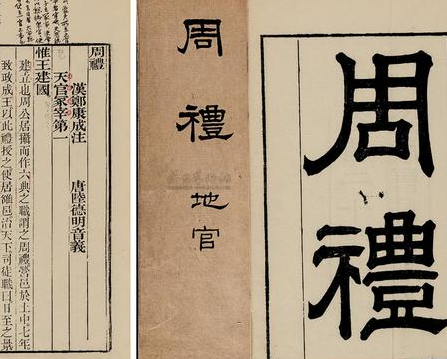 周禮
周禮 地官
周禮
漢鄭康成注 唐陸德明音義
天官冢宰第一
惟王建國
建立也周公居攝而作六典之職謂之周禮營邑於土中七年
致政成王以此禮授之使居雒邑治天下司徒職曰日至之景